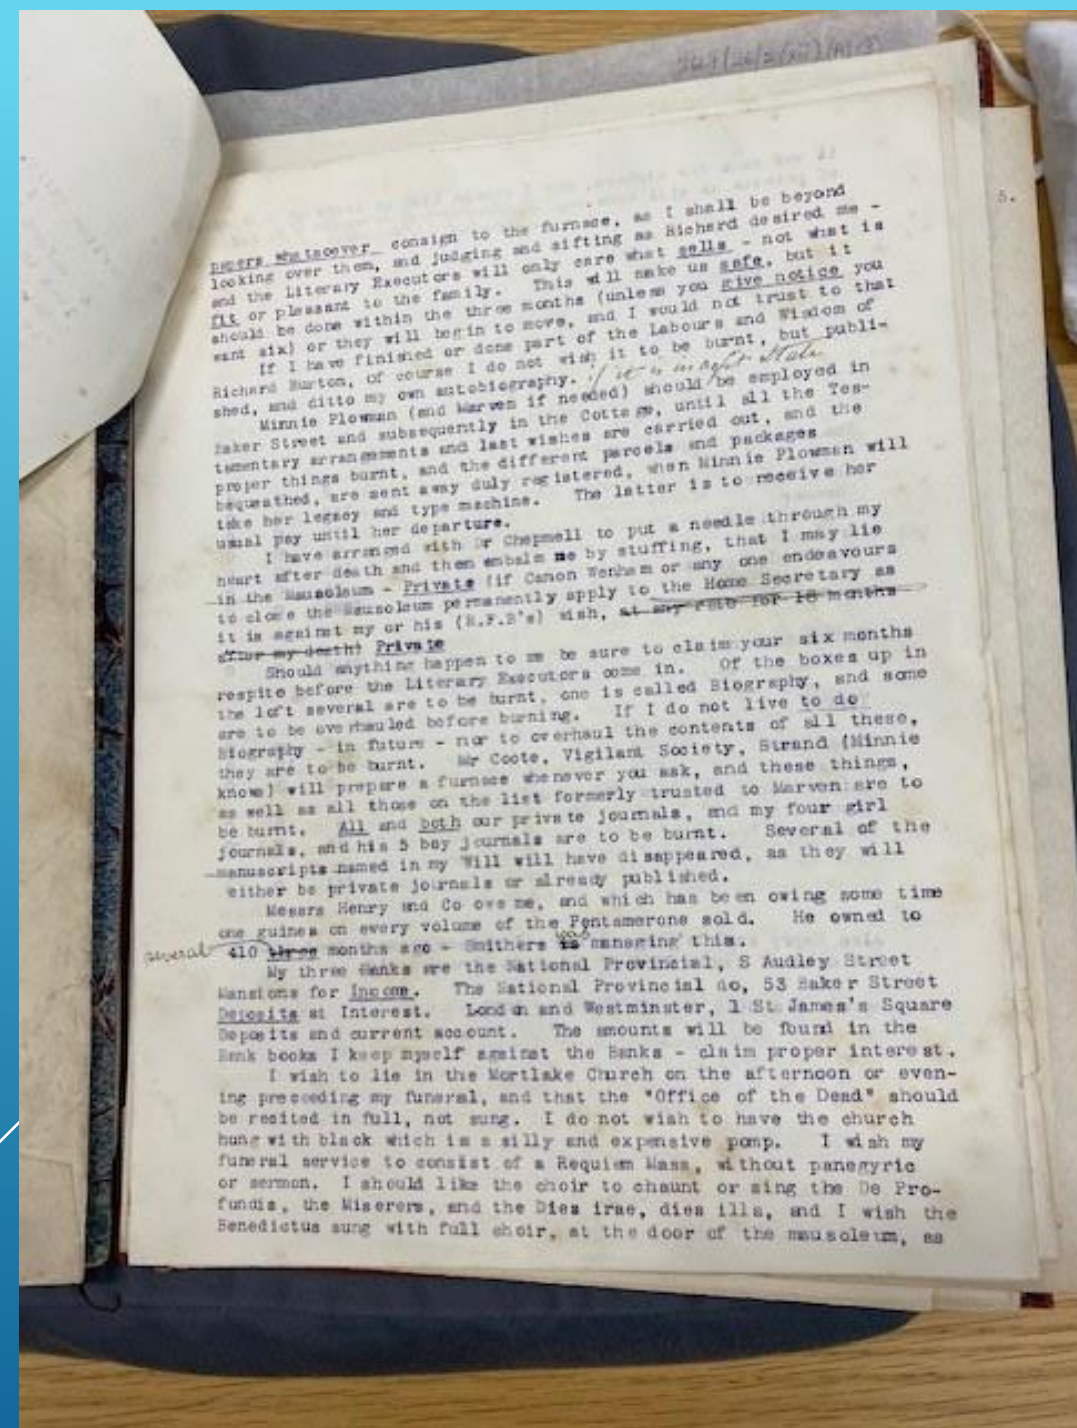 5.
papers whatsoever consign to the furnace, as I shall be beyond
looking over them, and judging and sifting as Richard desired me -
and the Literary Executors will only care what sells - not what is
fit or pleasant to the family. This will make us safe, but it
should be done within the three months (unless you give notice you
want six) or they will begin to move, and I would not trust to that
If I have finished or done part of the Labours and Wisdom of
Richard Burton, of course I do not wish it to be burnt, but publi-
shed, and ditto my own autobiography. if it is in a fit state
Minnie Plowman (and Marven if needed) should be employed in
Baker Street and subsequently in the Cottage, until all the Tes-
tamentary arrangements and last wishes are carried out, and the
proper things burnt, and the different parcels and packages
bequeathed, are sent away duly registered, when Minnie Plowman will
take her legacy and type machine. The latter is to receive her
usual pay until her departure.
I have arranged with Dr Chepmell to put a needle through my
heart after death and then embalm me by stuffing, that I may lie
in the Mausoleum - Private (if Canon Wenham or any one endeavours
to close the Mausoleum permanently apply to the Home Secretary as
it is against my or his (R.F.B's) wish, at any rate for 18 months
after my death) Private
Should anything happen to me be sure to claim your six months
respite before the Literary Executors come in. Of the boxes up in
the loft several are to be burnt, one is called Biography, and some
are to be overhauled before burning. If I do not live to do
Biography - in future - nor to overhaul the contents of all these,
they are to be burnt. Mr Coote, Vigilant Society, Strand (Minnie
knows) will prepare a furnace whenever you ask, and these things,
as well as all those on the list formerly trusted to Marven are to
be burnt. All and both our private journals, and my four girl
journals, and his 5 boy journals are to be burnt. Several of the
manuscripts named in my Will will have disappeared, as they will
either be private journals or already published.
Messrs Henry and Co owe me, and which has been owing some time
one guinea on every volume of the Pentamerone sold. He owned to
several 410 three months ago - Smithers was is managing this.
My three Banks are the National Provincial, S Audley Street
Mansions for income. The National Provincial do, 53 Baker Street
Deposits at Interest. London and Westminster, 1 St James's Square
Deposits and current account. The amounts will be found in the
Bank books I keep myself against the Banks - claim proper interest.
I wish to lie in the Mortlake Church on the afternoon or even-
ing preceeding my funeral, and that the "Office of the Dead" should
be recited in full, not sung. I do not wish to have the church
hung with black which is a silly and expensive pomp. I wish my
funeral service to consist of a Requiem Mass, without panegyric
or sermon. I should like the choir to chaunt or sing the De Pro-
fundis, the Miserere, and the Dies irae, dies illa, and I wish the
Benedictus sung with full choir, at the door of the mausoleum, as